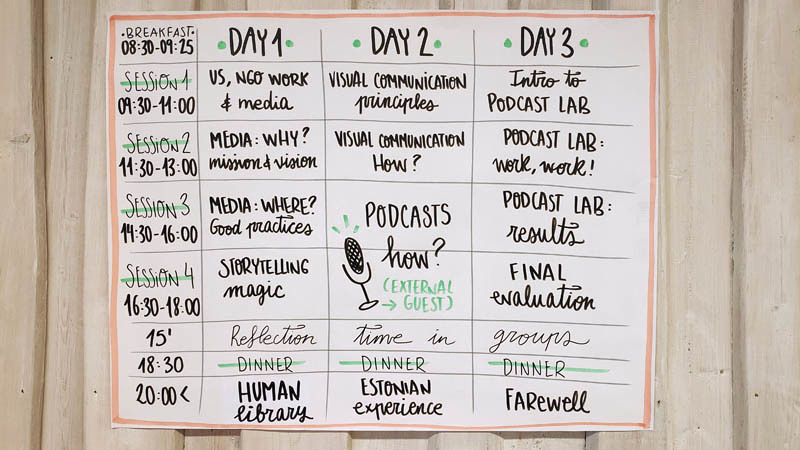 •BREAKFAST•
08:30-09:25
• DAY 1 •
• DAY 2 •
• DAY 3 •
SESSION 1
09:30-11:00
US, NGO WORK
& media
VISUAL COMMUNICATION
principles
Intro to
PODCAST LAB
SESSION 2
11:30-13:00
MEDIA: WHY?
mission & vision
VISUAL COMMUNICATION
How?
PODCAST LAB:
work, work!
SESSION 3
14:30-16:00
MEDIA: WHERE?
Good practices
PODCASTS
how?
(EXTERNAL
→ GUEST)
PODCAST LAB:
results
SESSION 4
16:30-18:00
STORYTELLING
magic
FINAL
evaluation
15' Reflection time in groups
18:30 DINNER DINNER DINNER
20:00<
HUMAN
library
ESTONIAN
experience
FAREWELL